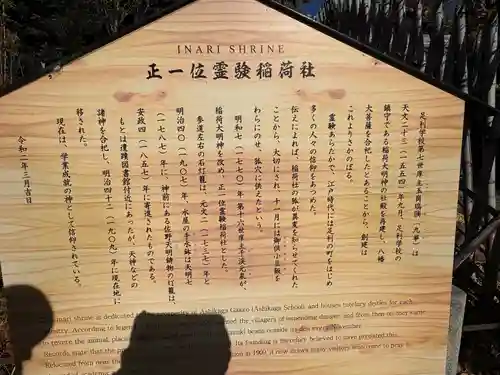 INARI SHRINE
正一位霊験稲荷社
足利学校第七世庠主玉崗瑞璵(九華)は
天文二十三(一五五四)年九月、足利学校の
鎮守である稲荷大明神の社殿を再建し、八幡
大菩薩を合祀したとあることから、創建は
これよりさかのぼる。
霊験あらたかで、江戸時代には足利の町をはじめ
多くの人々の信仰をあつめた。
伝えによれば、稲荷社の狐が異変を知らせてくれた
ことから、大切にされ、十一月には御供小豆飯を
わらにのせ、狐穴に供えたという。
明和七(一七七〇)年第十六世庠主千渓元泉が、
稲荷大明神を改め、正一位霊験稲荷社とした。
参道左右の石灯籠は、元文二(一七三七)年と
明治四〇(一九〇七)年、水屋の手水鉢は天明七
(一七八七)年に、神前にある佐野天明鋳物の灯籠は、
安政四(一八五七)年に寄進されたものである。
もとは遺蹟図書館付近にあったが、天神などの
諸神を合祀し、明治四十二(一九〇九)年に現在地に
移された。
現在は、学業成就の神として信仰されている。
令和二年三月吉日
shrine is dedicated to the prosperity of Ashikaga Gakko (Ashikaga School) and houses tutelary deities for each
According to legend the villagers of impending danger and from then on they earned
to revere the animal, placing azuki beans outside in November
Records state that the its founding is therefore believed to have preceded this.
Relocated from near the in 1909, it now draws many visitors who come to pray